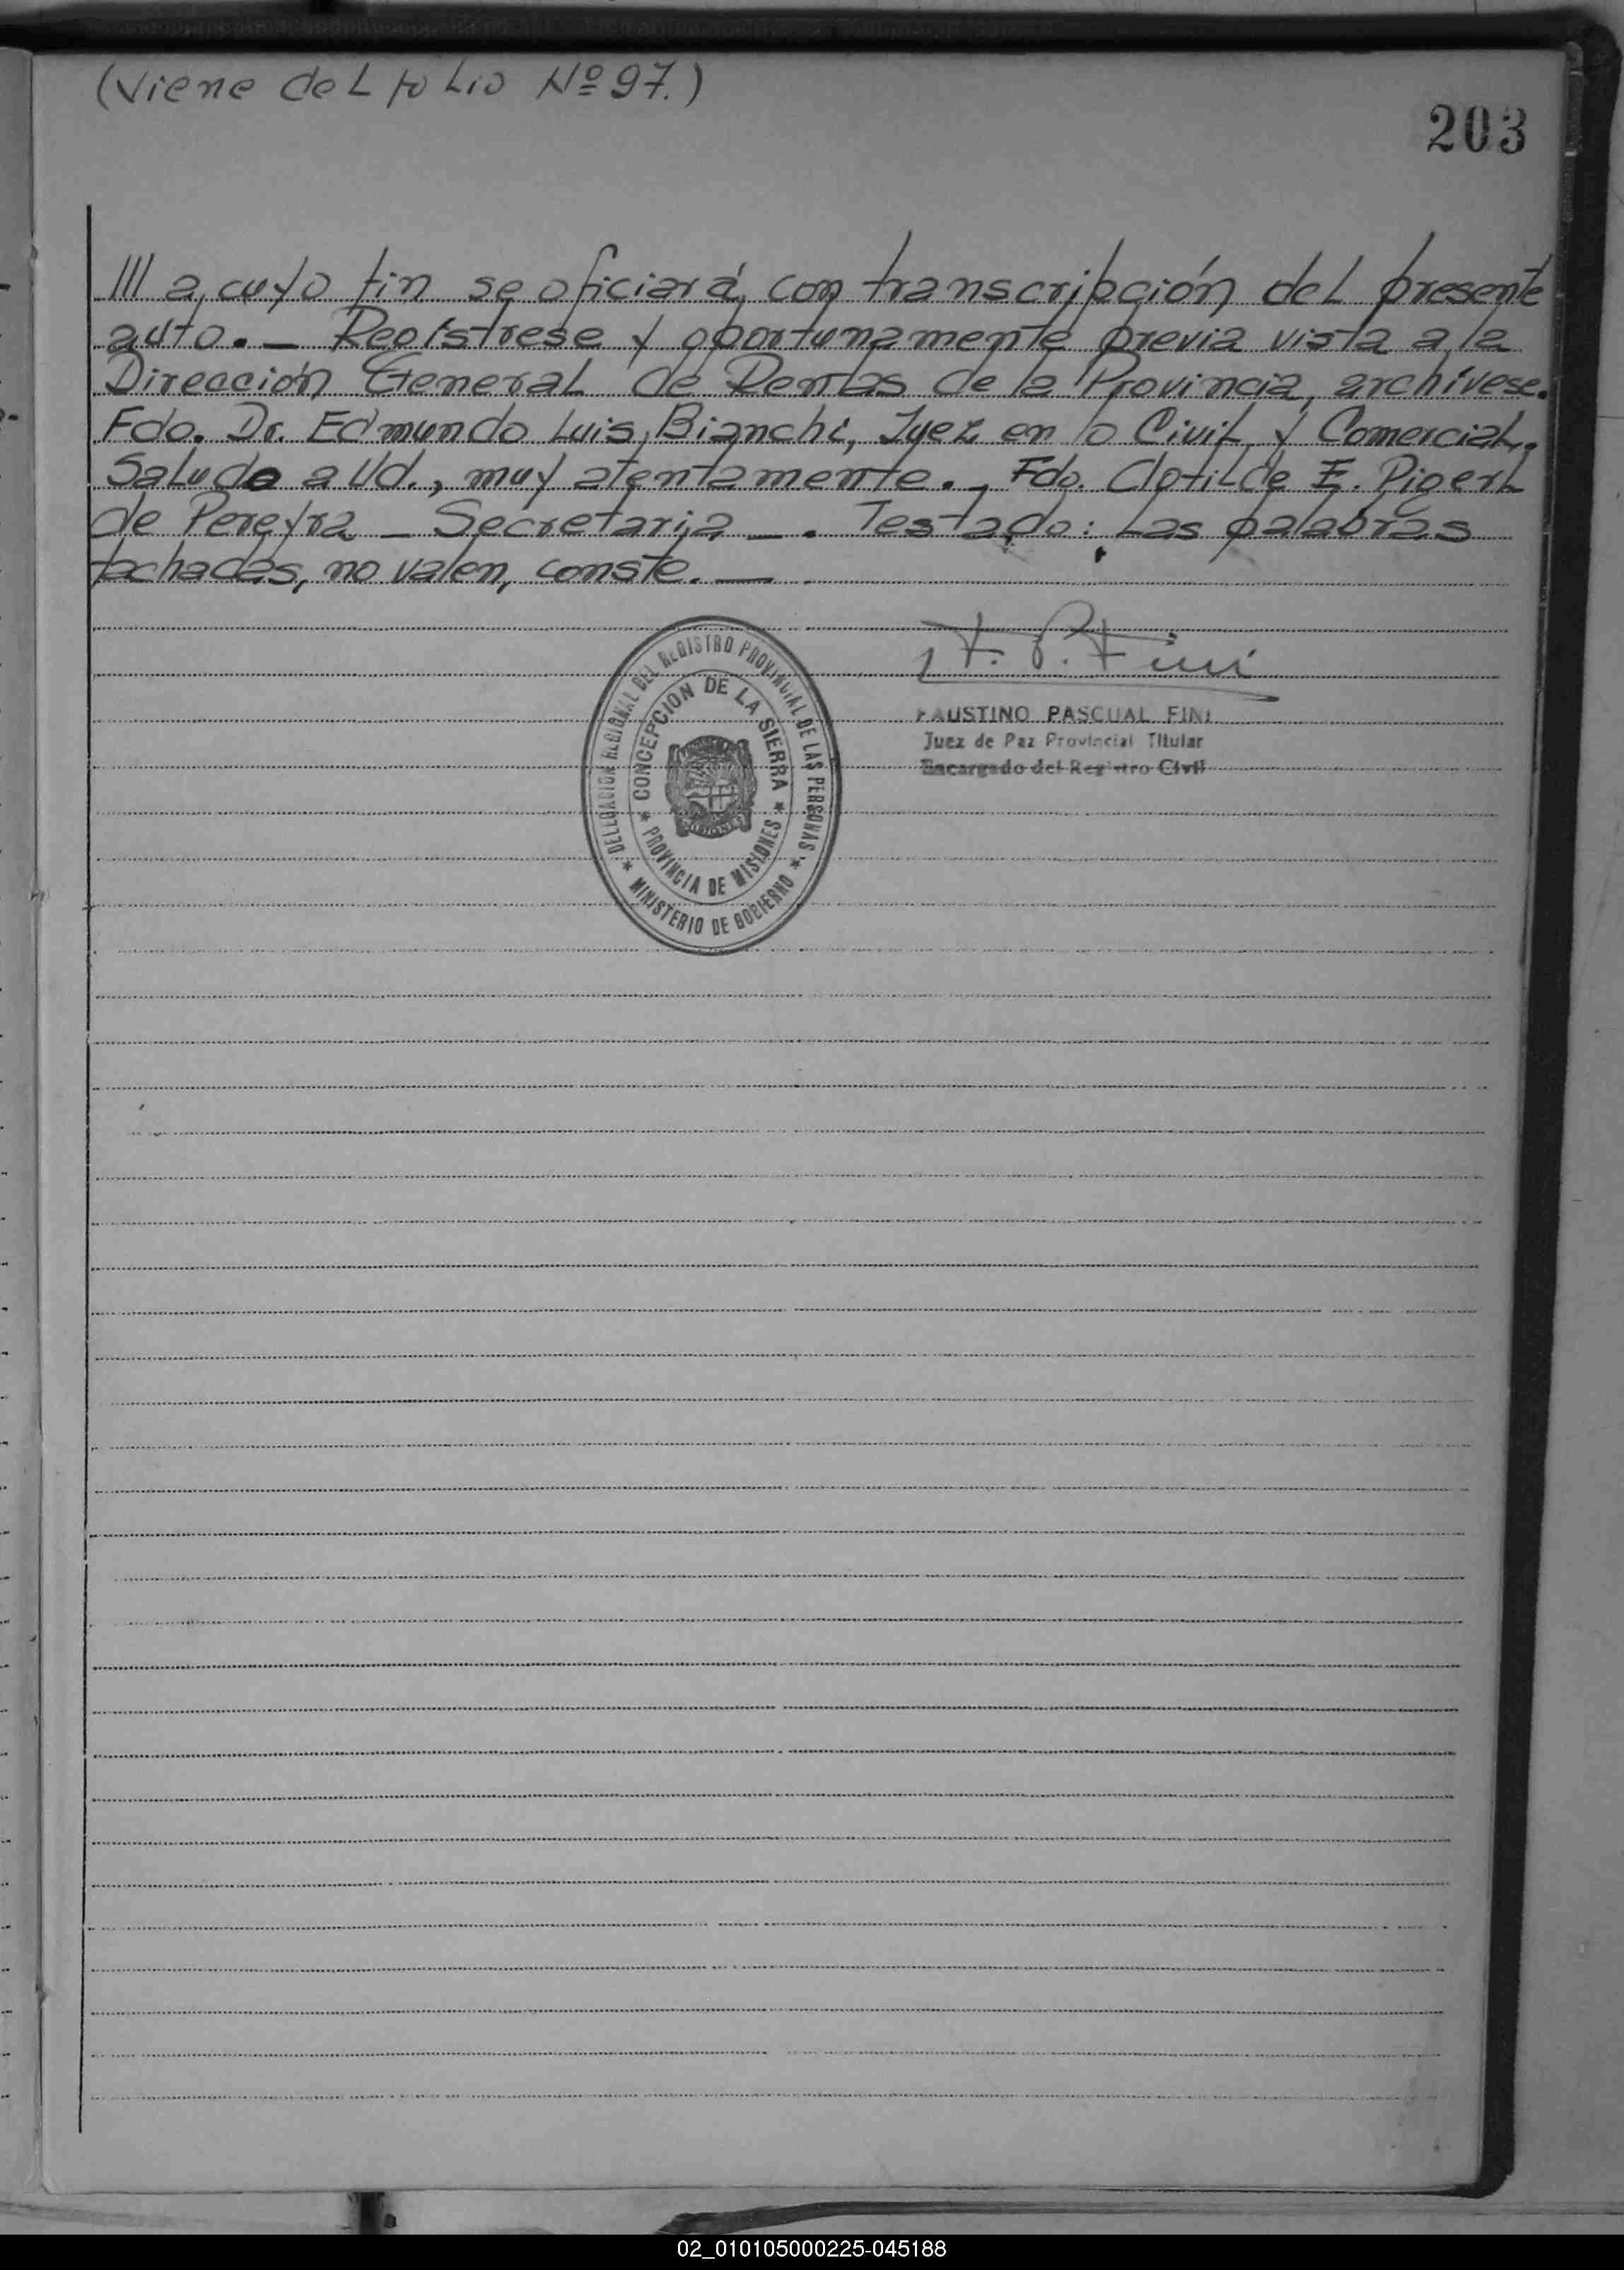 (Viene del folio Nº 97.)
203
/// a cuyo fin se oficiará con transcripción del presente
auto. — Regístrese y oportunamente previa vista a la
Dirección General de Rentas de la Provincia, archívese.
Fdo. Dr. Edmundo Luis Bianchi, Juez en lo Civil y Comercial.
Saludo a Ud., muy atentamente. - Fdo. Clotilde E. Pigerl
de Pereyra — Secretaria — . Testado: las palabras
tachadas, no valen, conste. —
F. P. Fini
FAUSTINO PASCUAL FINI
Juez de Paz Provincial Titular
Encargado del Registro Civil
DELEGACION REGIONAL DEL REGISTRO PROVINCIAL DE LAS PERSONAS
* MINISTERIO DE GOBIERNO *
* CONCEPCION DE LA SIERRA *
PROVINCIA DE MISIONES
02_010105000225-045188